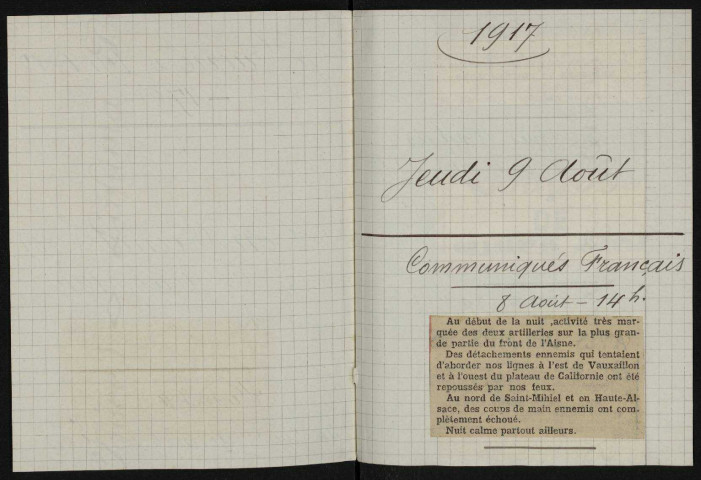 1917
Jeudi 9 Août
Communiqués Français
8 Août - 14 h.
Au début de la nuit ,activité très mar-
quée des deux artilleries sur la plus gran-
de partie du front de l'Aisne.
Des détachements ennemis qui tentaient
d'aborder nos lignes à l'est de Vauxaillon
et à l'ouest du plateau de Californie ont été
repoussés par nos feux.
Au nord de Saint-Mihiel et en Haute-Al-
sace, des coups de main ennemis ont com-
plètement échoué.
Nuit calme partout ailleurs.